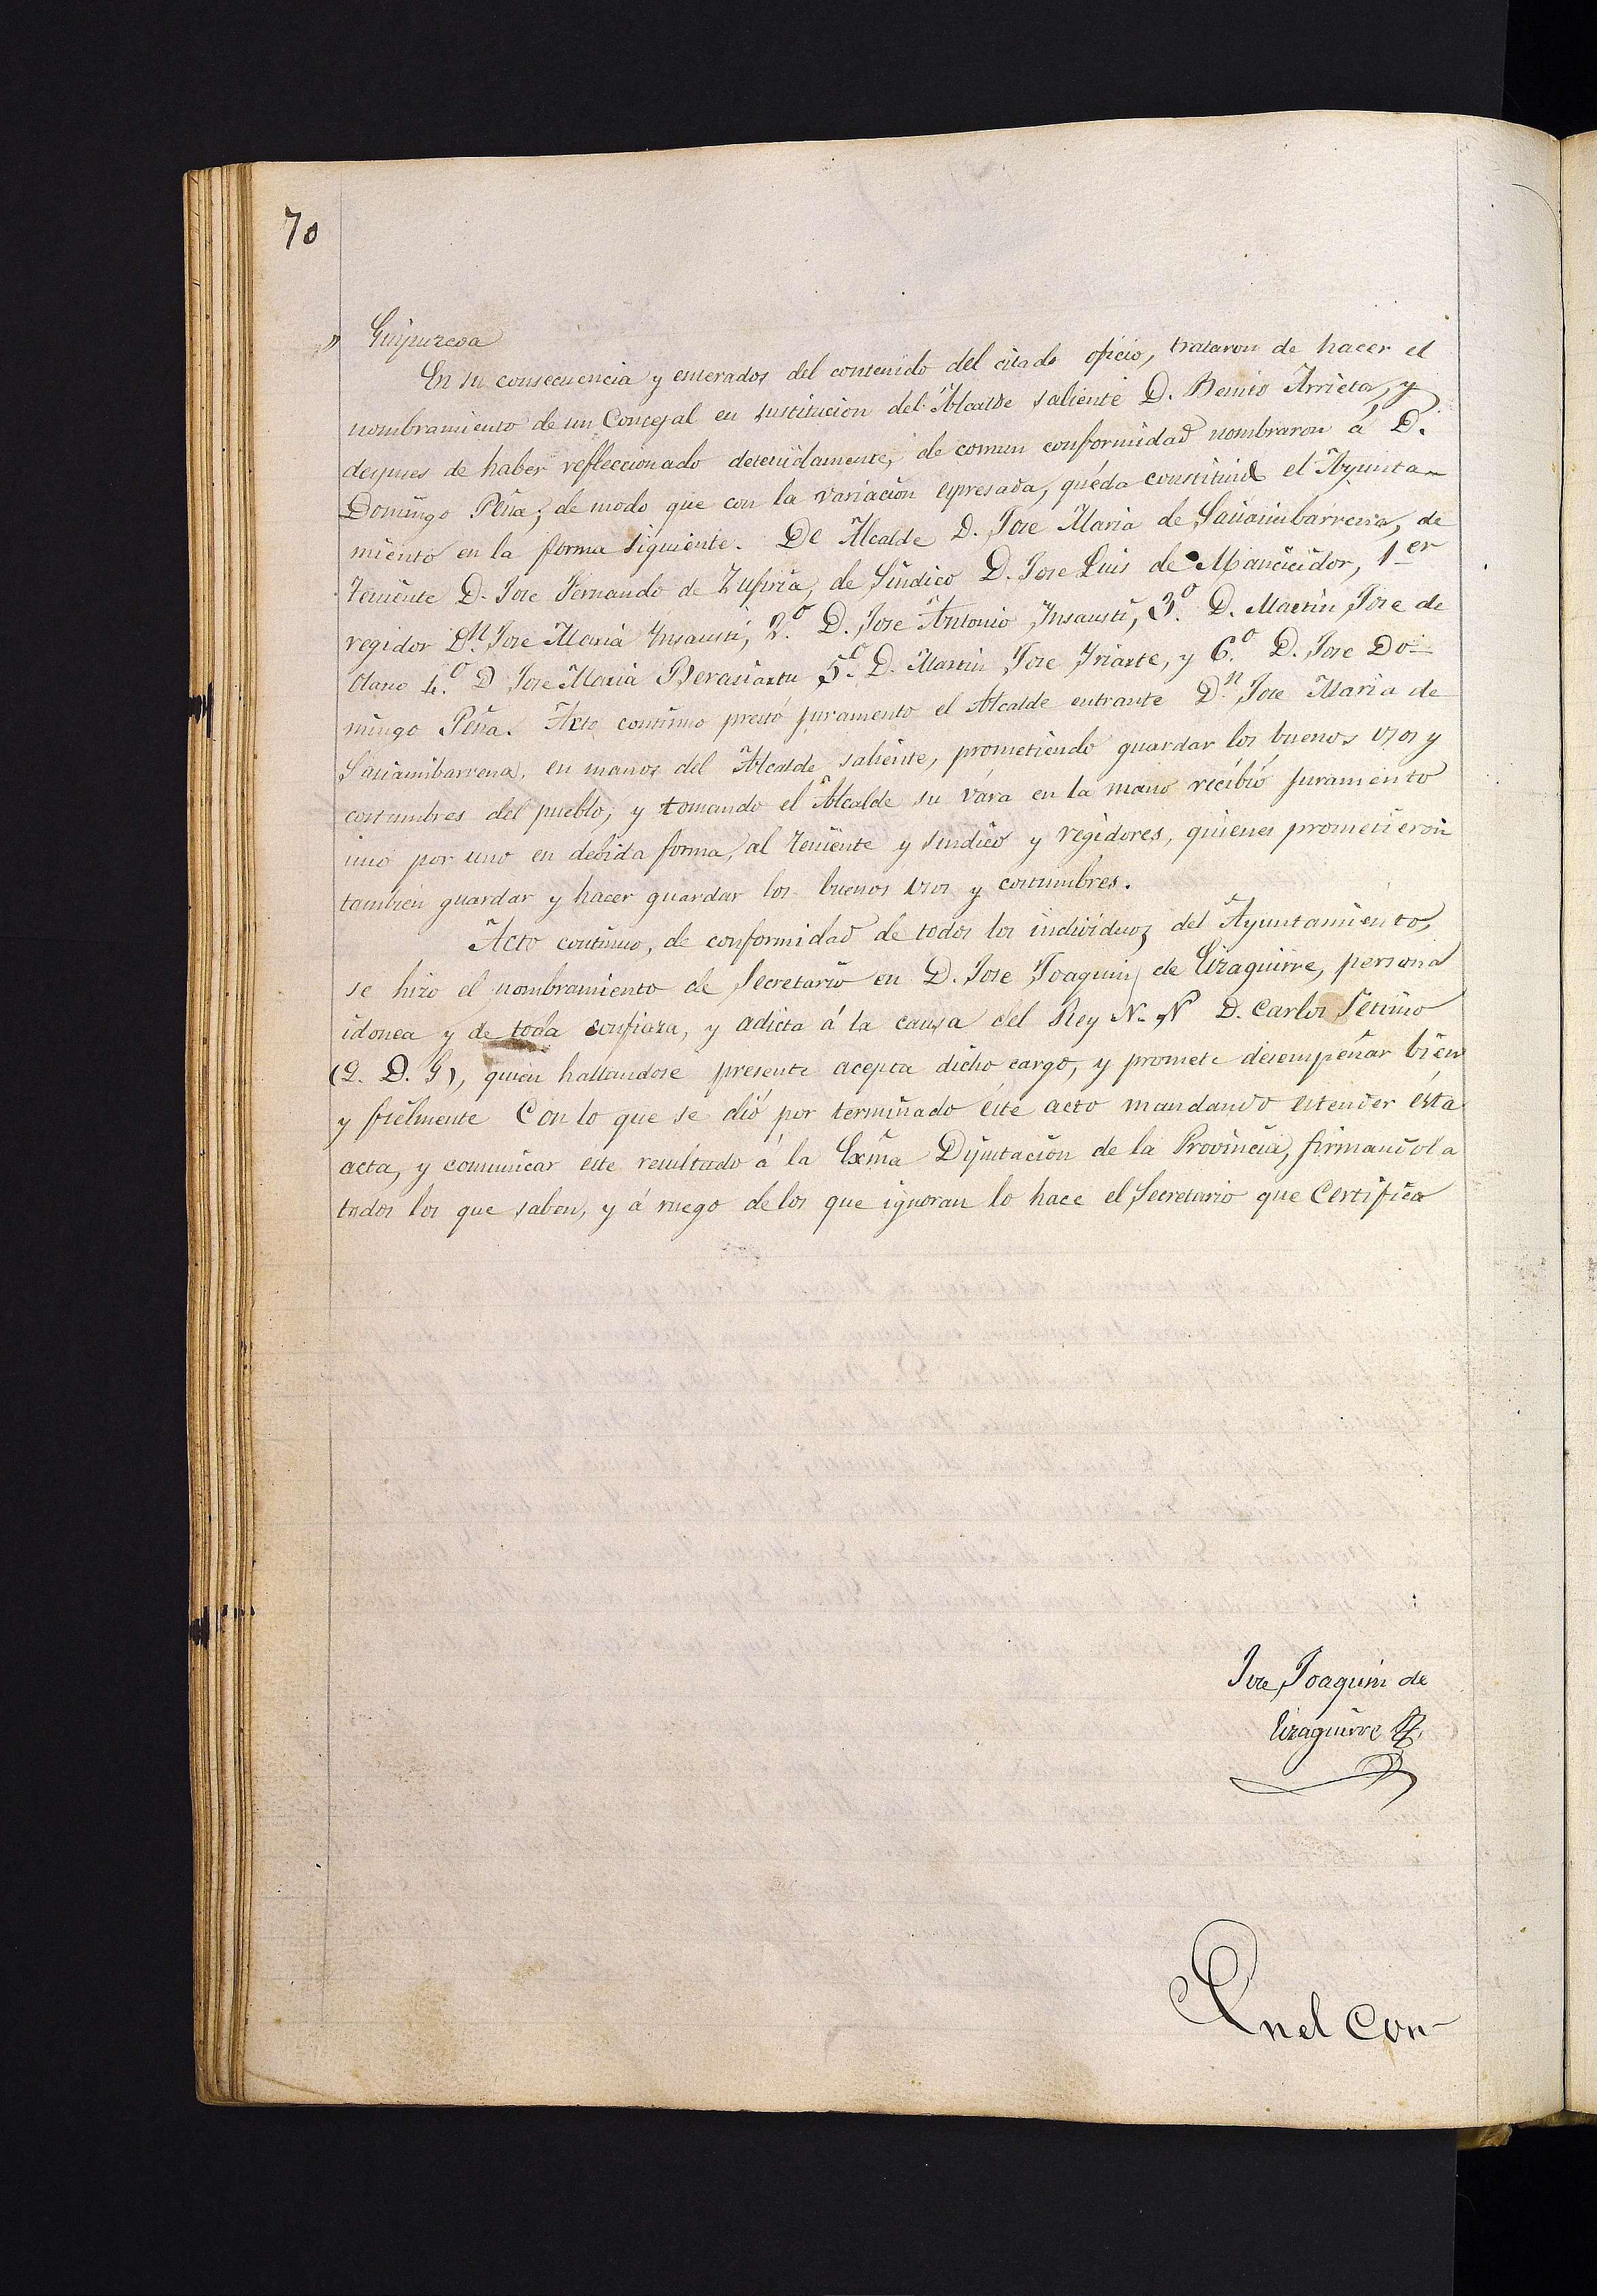 70
" Guipuzcoa
En su consecuencia y enterados del contenido del citado oficio, trataron de hacer el
nombramiento de un Concejal en sustitucion del Alcalde saliente D. Benito Arrieta, y
despues de haber refleccionado detenidamente, de comun conformidad nombraron á D.
Domingo Peña; de modo que con la variacion espresada, quéda constituido el Ayunta-
miento en la forma siguiente. De Alcalde D. Jose Maria de Sasiambarrena, de
Teniente D. Jose Fernando de Zufiria, de Sindico D. Jose Luis de Mancicidor, 1er
regidor Dn. Jose Maria Insausti, 2.o D. Jose Antonio Insausti, 3.o D. Martin Jose de
Olano 4.o D Jose Maria Berasiartu 5.o D. Martin Jose Iriarte, y 6.o D. Jose Do-
mingo Peña. Acto continuo prestó juramento el Alcalde entrante D.n Jose Maria de
Sasiambarrena, en manos del Alcalde saliente, prometiendo guardar los buenos usos y
costumbres del pueblo, y tomando el Alcalde su vára en la mano recibió juramento
uno por uno en debida forma, al teniente y sindico y regidores, quienes prometieron
tambien guardar y hacer guardar los buenos usos y costumbres.
Acto continuo, de conformidad de todos los individuos del Ayuntamiento,
se hizo el nombramiento de Secretario en D. Jose Joaquin de Eizaguirre, persona
idonea y de toda confiaza, y adicta á la causa del Rey N. N D. Carlos Setimo
(Q. D. G), quien hallandose presente acepta dicho cargo, y promete desempeñar bien
y fielmente Con lo que se dió por terminado éste acto mandando estender ésta
acta, y comunicar este resultado á la Exma Diputacion de la Provincia, firmandola
todos los que saben, y á ruego de los que ignoran lo hace el Secretario que Certifica
Jose Joaquin de
Eizaguirre
En el con-